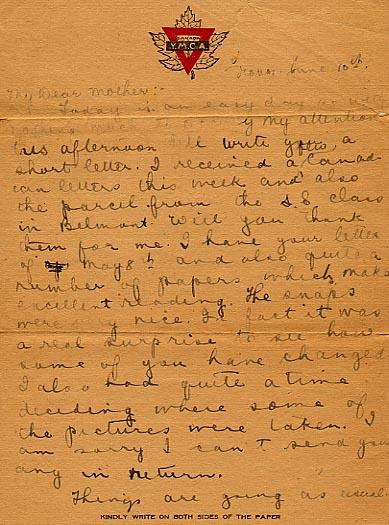 CANADA
Y.M.C.A.
June 10th.
My Dear Mother:-
Today is an easy day
my attention
this afternoon I'll write you a
short letter. I received a Canad-
ian letters this week and also
the parcel from the S.S class
in Belmont. Will you thank
them for me. I have your letter
of May 8th and also quite a
number of papers which make
excellent reading. The snaps
were very nice. In fact it was
a real surprise to see how
some of you have changed
I also had quite a time
deciding where some of
the pictures were taken. I
am sorry I can't send you
any in return.
Things are going as usual
KINDLY WRITE ON BOTH SIDES OF THE PAPER